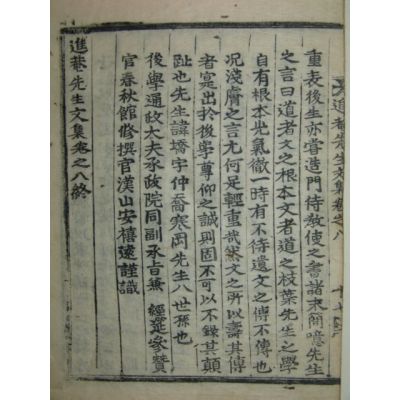 重表後生亦嘗造門待教使之書諸末簡噫先生
之言曰道者文之根本文者道之枝葉先生之學
自有根本光氣徹一時有不待遺文之傳不傳也
況淺膚之言尤何是輕重哉然文之所以壽其傳
者寔出於後學尊仰之誠則固不可以不錄其顛
趾也先生諱墧字仲喬寒岡先生八世孫也
後學通政大夫承政院同副承旨兼 經筵參贊
官春秋館修撰官漢山安禧遠謹識
進菴先生文集卷之八終
進菴先生文集卷之八